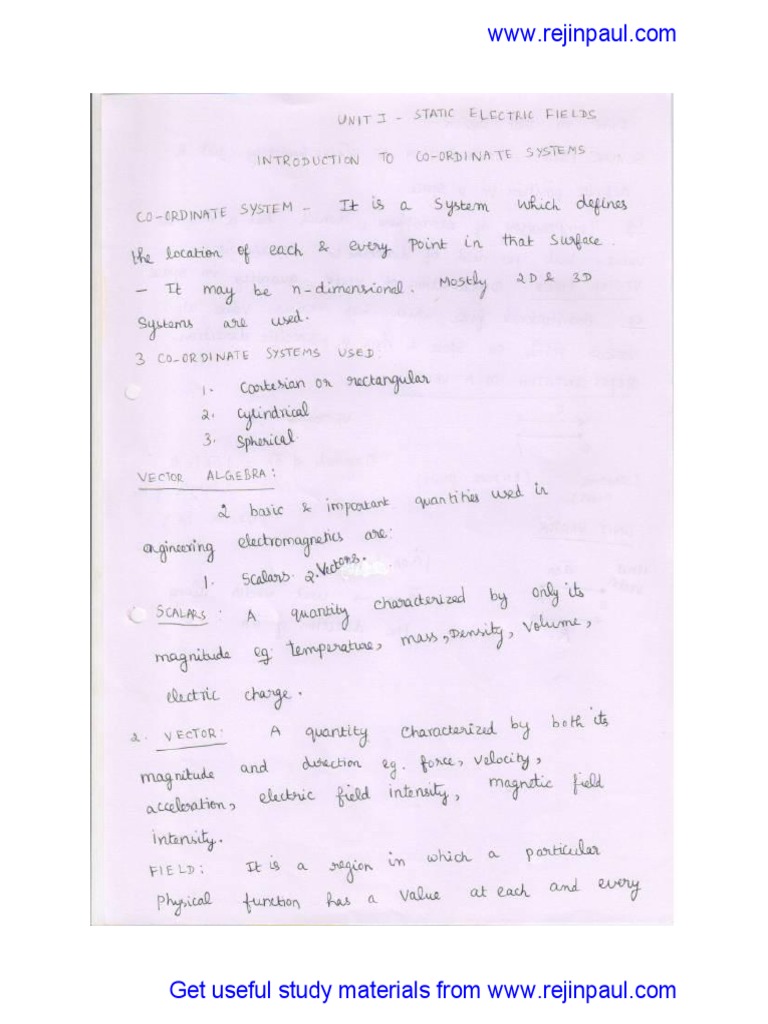 www.rejinpaul.com
UNIT I - STATIC ELECTRIC FIELDS
INTRODUCTION TO CO-ORDINATE SYSTEMS
CO-ORDINATE SYSTEM - It is a system which defines
the location of each & every point in that surface.
- It may be n-dimensional. Mostly 2D & 3D
Systems are used.
3 CO-ORDINATE SYSTEMS USED:
1. Cartesian or rectangular
2. Cylindrical
3. Spherical
VECTOR ALGEBRA:
2 basic & important quantities used in
engineering electromagnetics are:
1. Scalars. 2. Vectors.
SCALARS: A quantity characterized by only its
magnitude eg: temperature, mass, Density, Volume,
electric charge.
2. VECTOR: A quantity characterized by both its
magnitude and direction eg. force, velocity,
acceleration, electric field intensity, magnetic field
intensity.
FIELD: It is a region in which a particular
Physical function has a value at each and every
Get useful study materials from www.rejinpaul.com